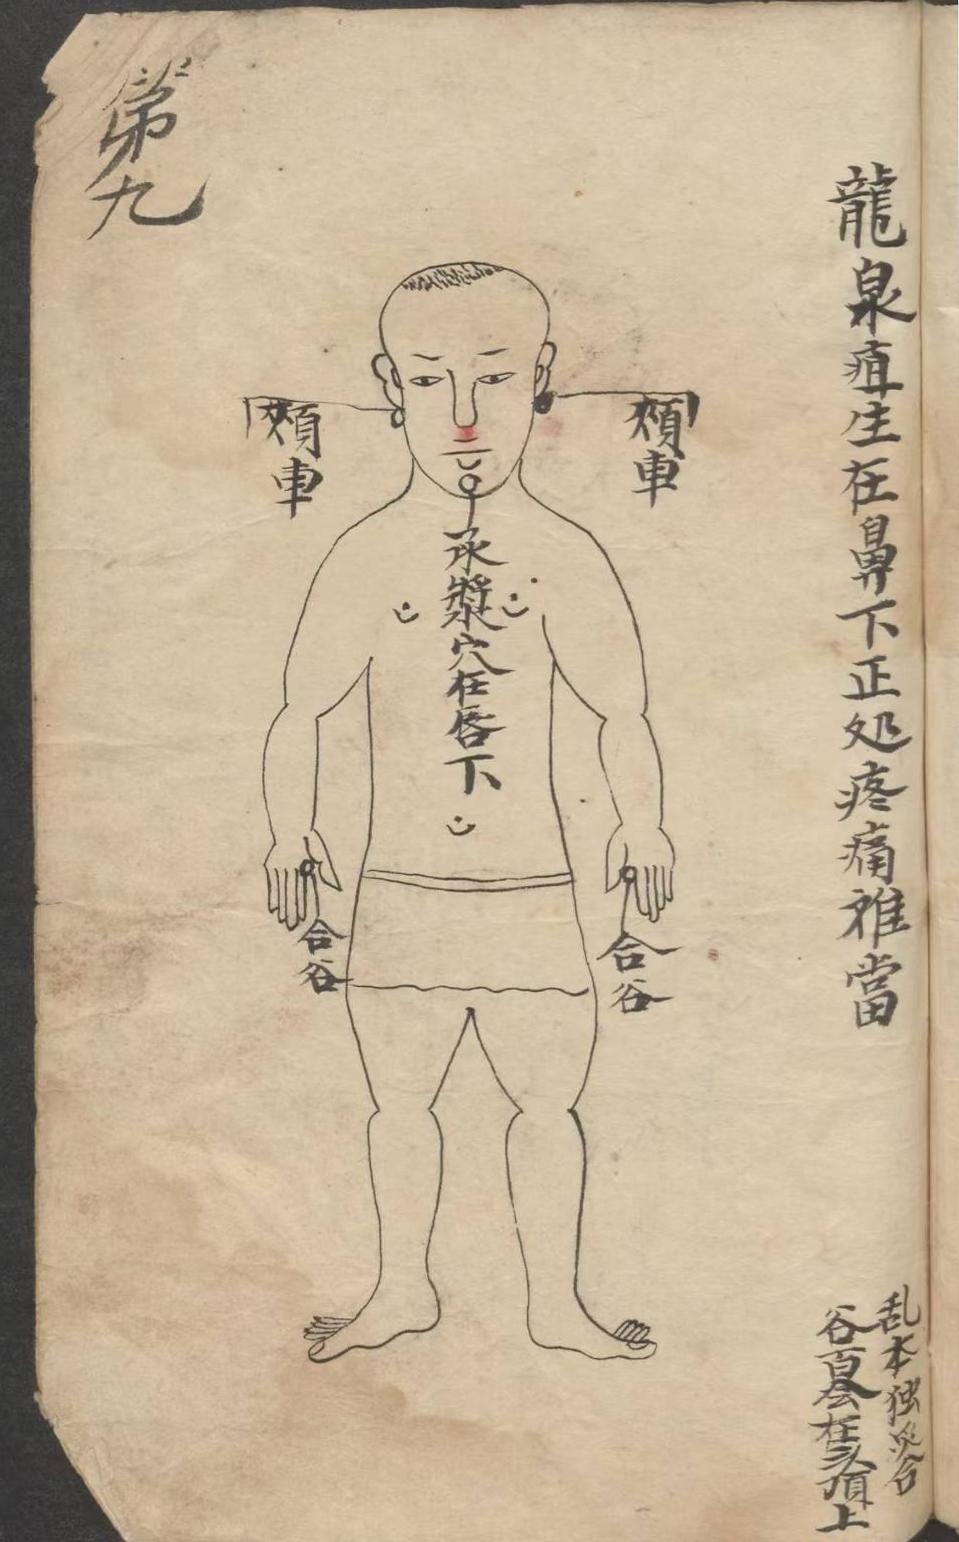 龍泉疽生在鼻下正処疼痛难當
乱本独灸合
谷百会在头頂上
頰車
承漿穴在唇下
頰車
合谷
合谷
第九